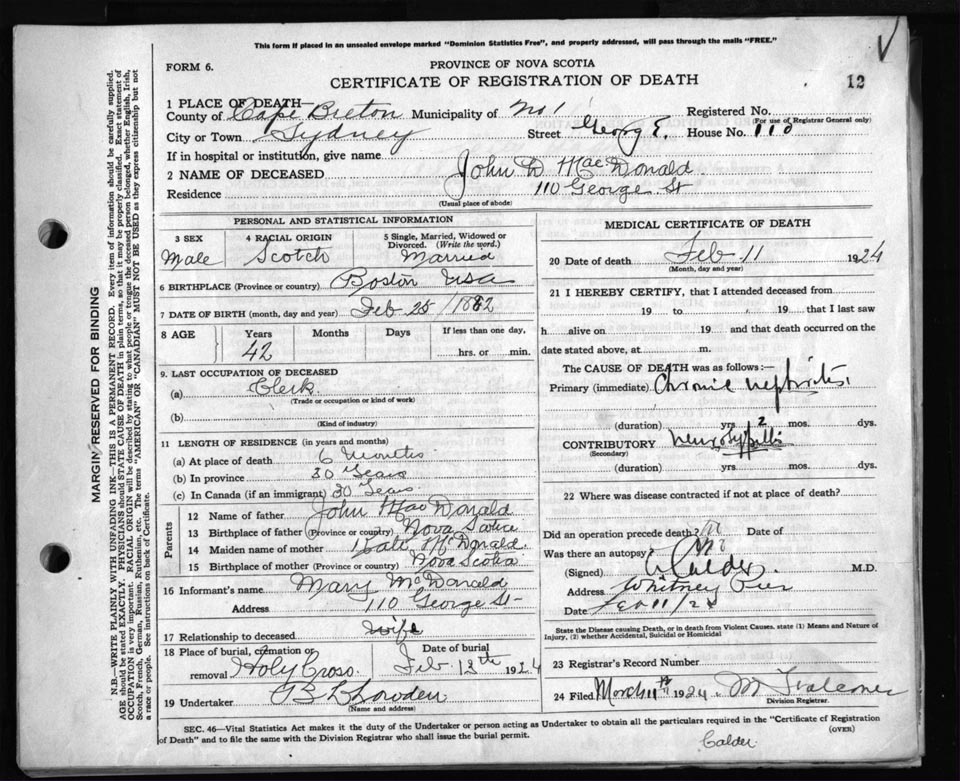 This form if placed in an unsealed envelope marked "Dominion Statistics Free", and properly addressed, will pass through the mails "FREE."
FORM 6.
PROVINCE OF NOVA SCOTIA
CERTIFICATE OF REGISTRATION OF DEATH
12
1 PLACE OF DEATH—
County of Cape Breton Municipality of No 1 Registered No.
(For use of Registrar General only)
City or Town Sydney Street George E. House No. 110
If in hospital or institution, give name
2 NAME OF DECEASED John D MacDonald
Residence 110 George St
(Usual place of abode)
PERSONAL AND STATISTICAL INFORMATION
3 SEX
Male
4 RACIAL ORIGIN
Scotch
5 Single, Married, Widowed or Divorced. (Write the word.)
Married
6 BIRTHPLACE (Province or country) Boston USA
7 DATE OF BIRTH (month, day and year) Feb 25/1882
8 AGE Years Months Days If less than one day,
42 hrs. or min.
9. LAST OCCUPATION OF DECEASED
(a) Clerk
(Trade or occupation or kind of work)
(b)
(Kind of industry)
11 LENGTH OF RESIDENCE (in years and months)
(a) At place of death 6 Months
(b) In province 30 Years
(c) In Canada (if an immigrant) 30 Years
Parents
12 Name of father John MacDonald
13 Birthplace of father (Province or country) Nova Scotia
14 Maiden name of mother Kate McDonald
15 Birthplace of mother (Province or country) Nova Scotia
16 Informant's name Mary McDonald
Address 110 George St
17 Relationship to deceased Wife
18 Place of burial, cremation or removal Holy Cross
Date of burial
Feb. 12th 1924
19 Undertaker
(Name and address)
MEDICAL CERTIFICATE OF DEATH
20 Date of death Feb 11 1924
(Month, day and year)
21 I HEREBY CERTIFY, that I attended deceased from
19 to , 19 that I last saw
h alive on 19 and that death occurred on
date stated above, at m.
The CAUSE OF DEATH was as follows:—
Primary (immediate) Chronic nephritis
(duration) yrs. 2 mos. dys.
CONTRIBUTORY
(Secondary)
(duration) yrs. mos. dys.
22 Where was disease contracted if not at place of death?
Did an operation precede death? No Date of
Was there an autopsy? No
(Signed) Calder M.D.
Address Whitney Pier
Date Feb 11/24
State the Disease causing Death, or in death from Violent Causes, state (1) Means and Nature of Injury, (2) whether Accidental, Suicidal or Homicidal
23 Registrar's Record Number
24 Filed March 11th 1924
Division Registrar.
SEC. 46—Vital Statistics Act makes it the duty of the Undertaker or person acting as Undertaker to obtain all the particulars required in the "Certificate of Registration of Death" and to file the same with the Division Registrar who shall issue the burial permit.
(OVER)
Calder
MARGIN RESERVED FOR BINDING
N.B.—WRITE PLAINLY WITH UNFADING INK—THIS IS A PERMANENT RECORD. Every item of information should be carefully supplied.
AGE should be stated EXACTLY. PHYSICIANS should STATE CAUSE OF DEATH in plain terms, so that it may be properly classified. Exact statement of
OCCUPATION is very important. RACIAL ORIGIN will be described by stating to what people or tongue the deceased person belonged, whether English, Irish,
Scotch, French, German, Russian, Ruthenian, etc. The terms "AMERICAN" OR "CANADIAN" MUST NOT BE USED as they express citizenship but not
a race or people. See instructions on back of Certificate.